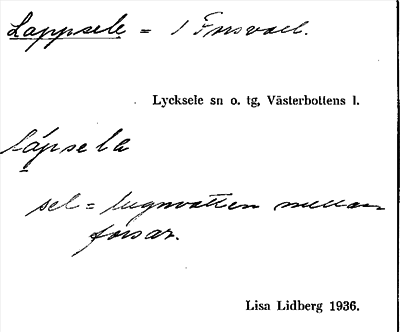 Lappsele = 
Lycksele sn o. tg, Västerbottens l.
Lápsela
sel = lugnvatten mellan
forsar.
Lisa Lidberg 1936.